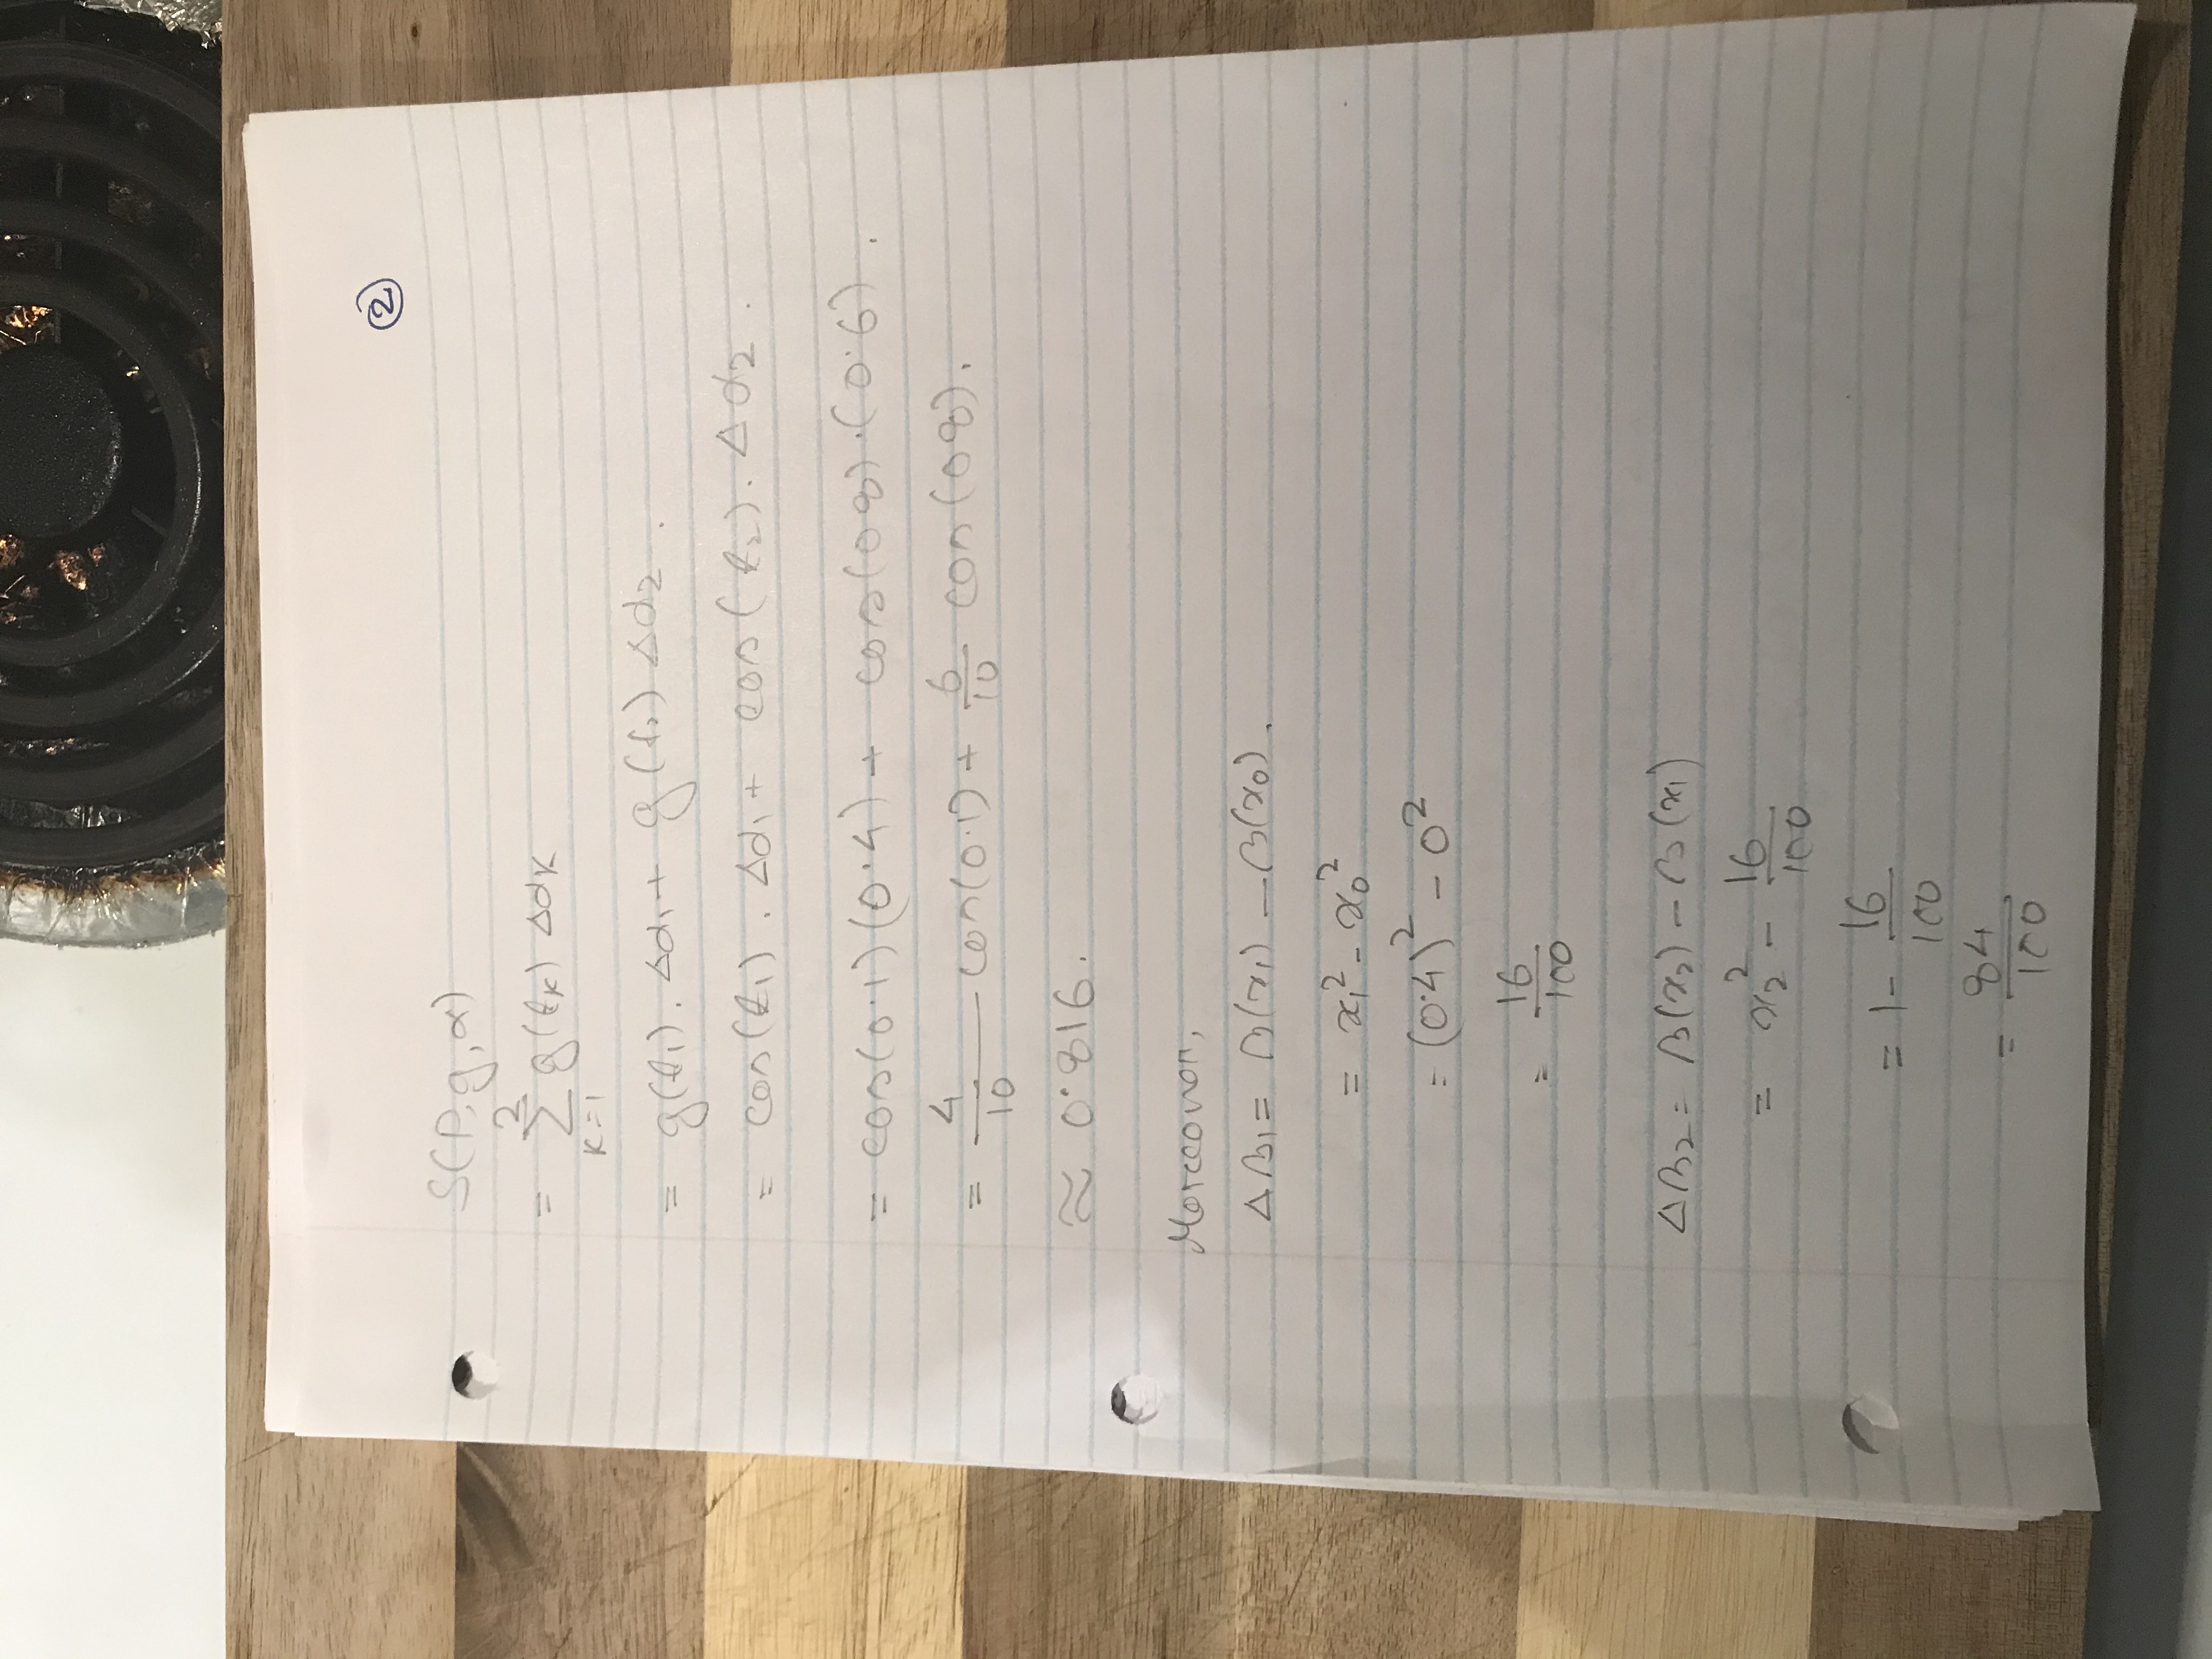 ②
S(P, g, α)
= Σ_{K=1}^{2} g(t_K) Δα_K
= g(t₁). Δα₁ + g(t₂) Δα₂.
= cos(t₁). Δα₁ + cos(t₂). Δα₂.
= cos(0.1)(0.4) + cos(0.8).(0.6).
= 4/10 cos(0.1) + 6/10 cos(0.8).
≈ 0.816.
Moreover,
Δβ₁ = β(x₁) - β(x₀).
= x₁² - x₀²
= (0.4)² - 0²
= 16/100
Δβ₂ = β(x₂) - β(x₁)
= x₂² - 16/100
= 1 - 16/100
= 84/100